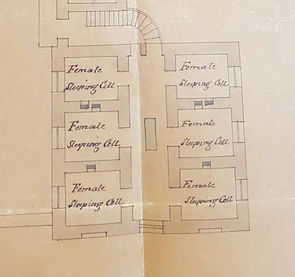 Female
Sleeping Cell
Female
Sleeping Cell
Female
Sleeping Cell
Female
Sleeping Cell
Female
Sleeping Cell
Female
Sleeping Cell